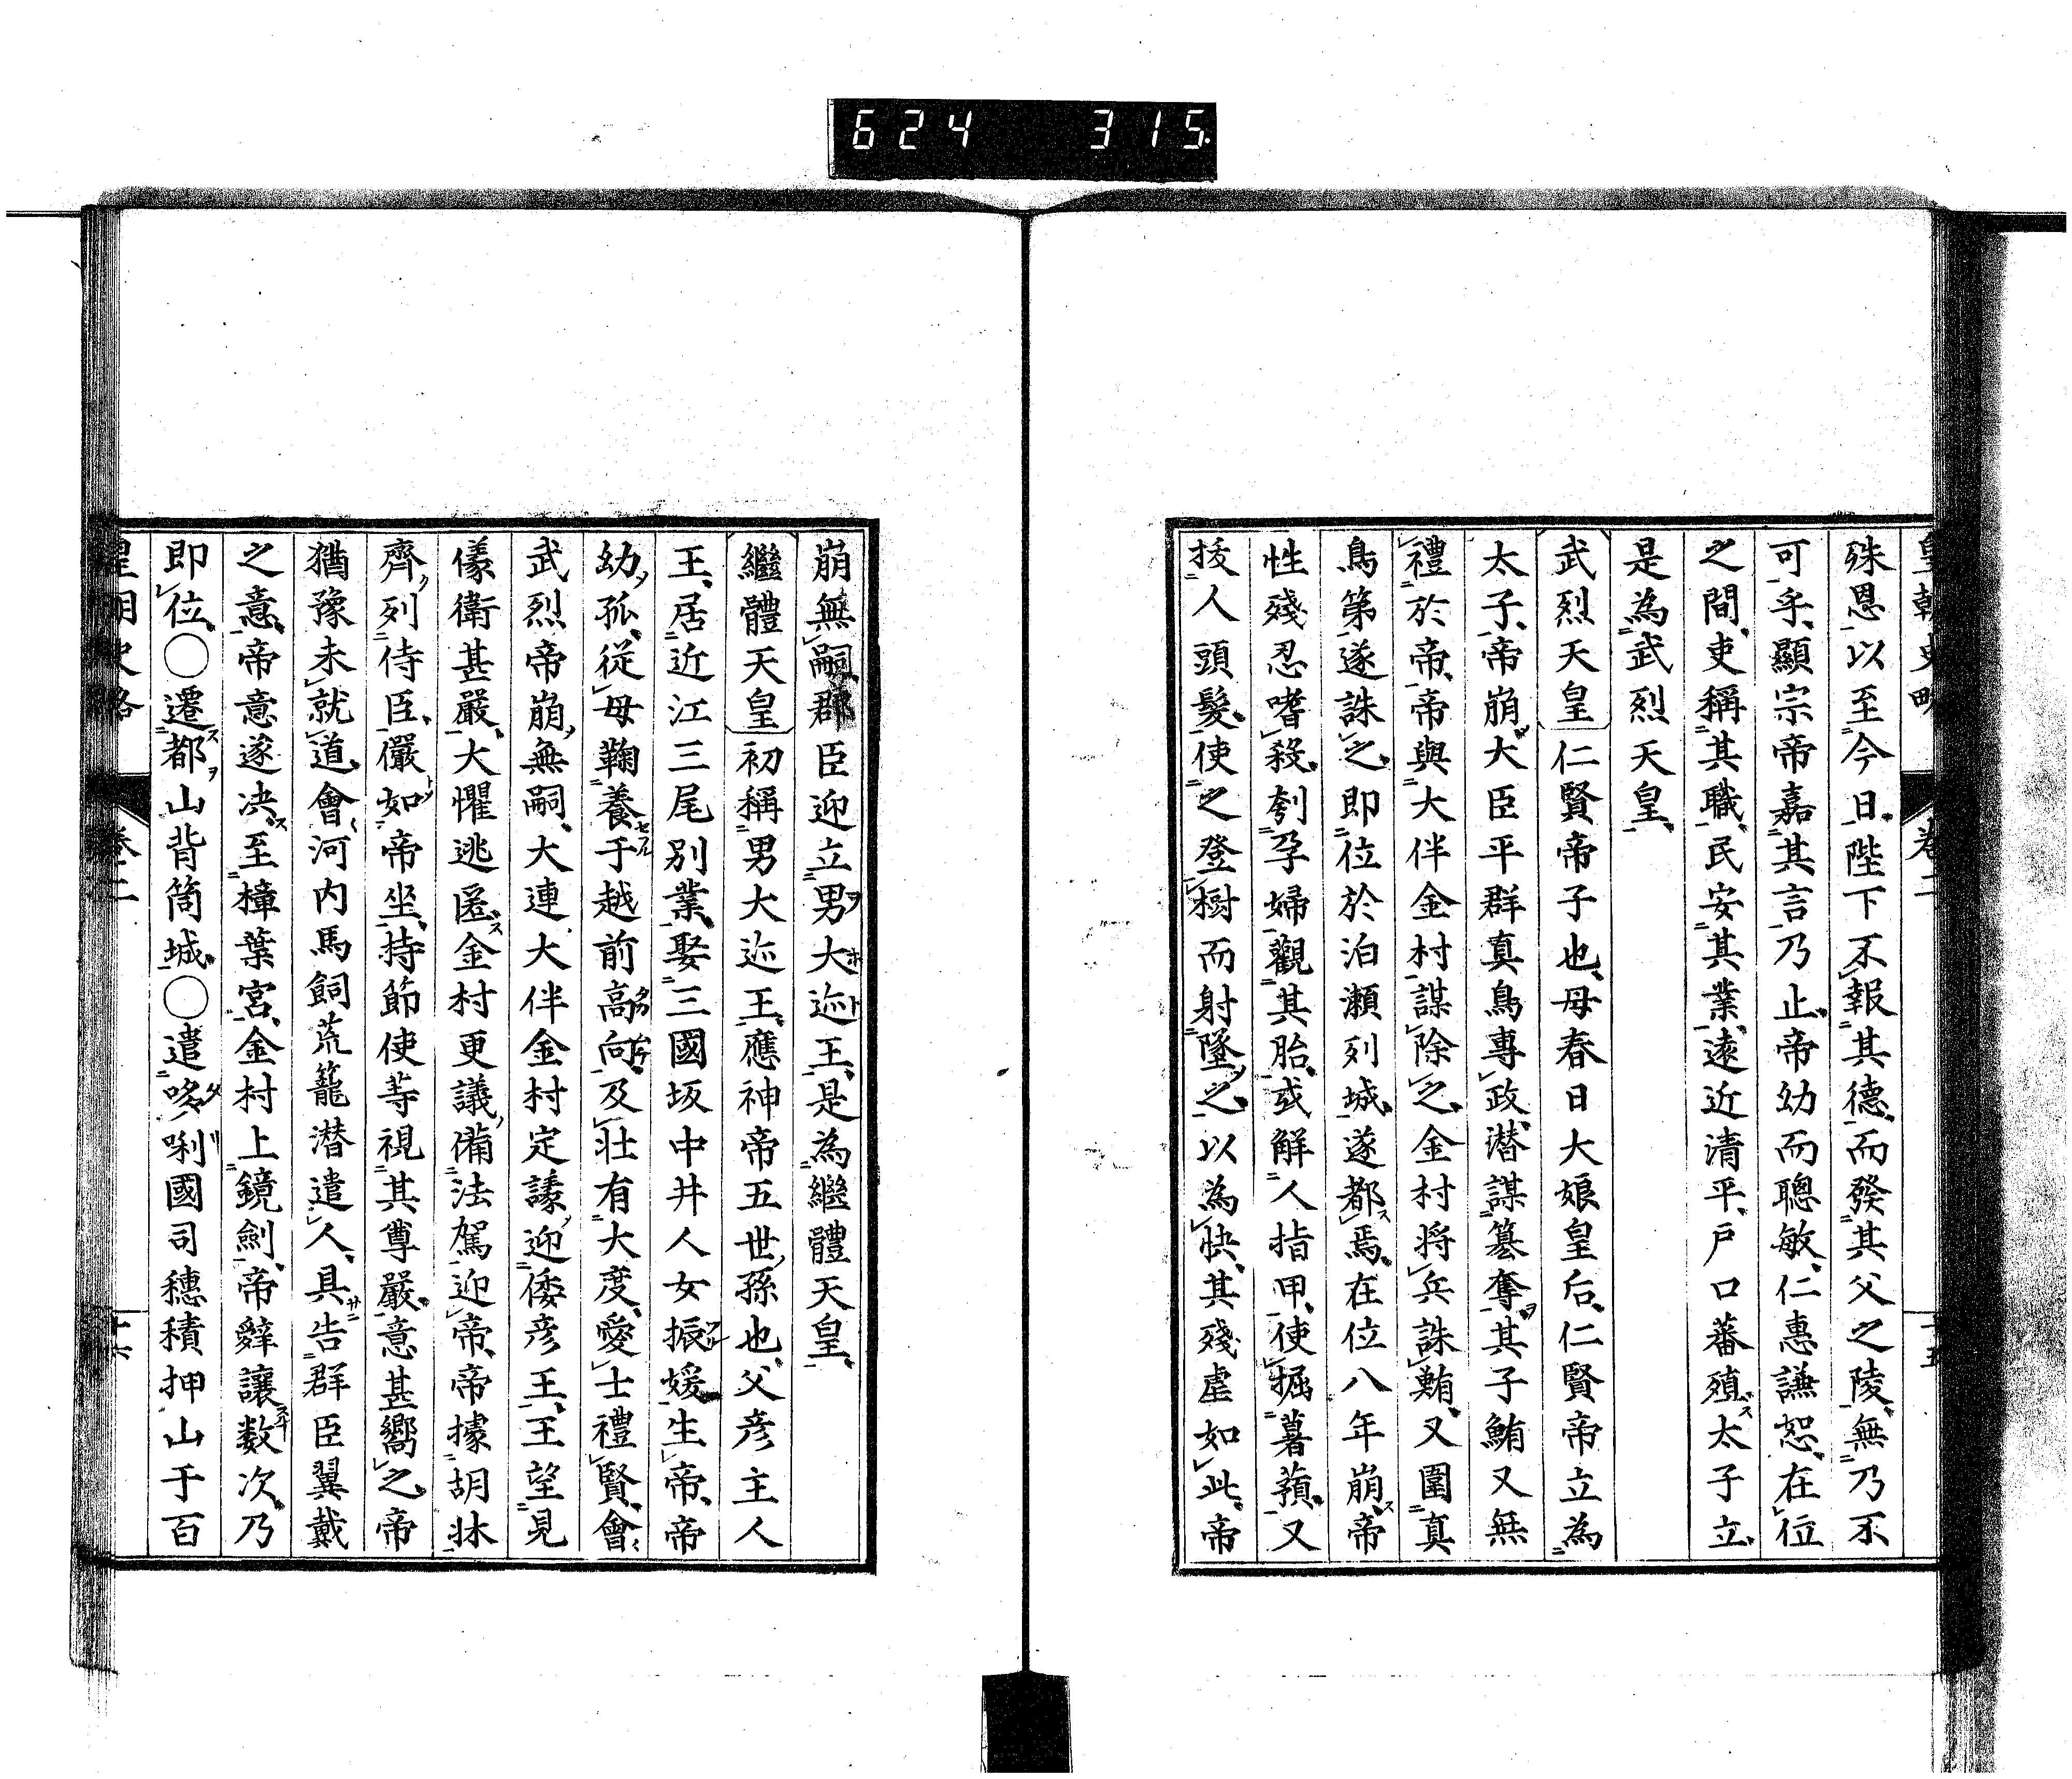 624 315
皇朝史略 卷二 十五
殊恩以至今日陛下不報其德而發其父之陵無乃不
可乎顯宗帝嘉其言乃止帝幼而聰敏仁惠謙恕在位
之間吏稱其職民安其業遠近清平戶口蕃殖太子立
是為武烈天皇
武烈天皇仁賢帝子也母春日大娘皇后仁賢帝立為
太子帝崩大臣平群真鳥專政潜謀簒奪其子鮪又無
禮於帝帝與大伴金村謀除之金村将兵誅鮪又圍真
鳥第遂誅之即位於泊瀬列城遂都焉在位八年崩帝
性殘忍嗜殺刳孕婦觀其胎或解人指甲使掘暑蕷又
拔人頭髮使之登樹而射墜之以為快其殘虐如此帝
崩無嗣群臣迎立男大迹王是為繼體天皇
繼體天皇初稱男大迹王應神帝五世孫也父彦主人
王居近江三尾別業娶三國坂中井人女振媛生帝帝
幼孤從母鞠養于越前高向及壯有大度愛士禮賢會
武烈帝崩無嗣大連大伴金村定議迎倭彦王王望見
儀衛甚嚴大懼逃匿金村更議備法駕迎帝帝據胡牀
齊列侍臣儼如帝坐持節使等視其尊嚴意甚嚮之帝
猶豫未就道會河内馬飼荒籠潜遣人具告群臣翼戴
之意帝意遂决至樟葉宮金村上鏡劍帝辭讓数次乃
即位○遷都山背筒城○遣哆唎國司穗積押山于百
皇朝史略 卷二 十六